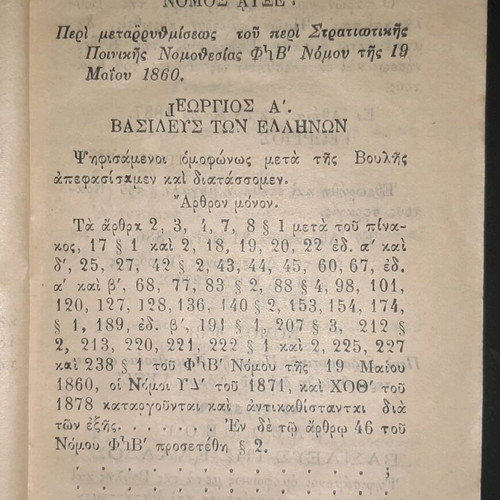 ΝΟΜΟΣ ΑΥΞΕ΄.
Περὶ μεταρρυθμίσεως τοῦ περὶ Στρατιωτικῆς
Ποινικῆς Νομοθεσίας ΦϞΒ′ Νόμου τῆς 19
Μαΐου 1860.
ΓΕΩΡΓΙΟΣ Α΄.
ΒΑΣΙΛΕΥΣ ΤΩΝ ΕΛΛΗΝΩΝ
Ψηφισάμενοι ὁμοφώνως μετὰ τῆς Βουλῆς
ἀπεφασίσαμεν καὶ διατάσσομεν.
Ἄρθρον μόνον.
Τὰ ἄρθρα 2, 3, 4, 7, 8 § 1 μετὰ τοῦ πίνα-
κος, 17 § 1 καὶ 2, 18, 19, 20, 22 ἐδ. α′ καὶ
δ′, 25, 27, 42 § 2, 43, 44, 45, 60, 67, ἐδ.
α′ καὶ β′, 68, 77, 83 § 2, 88 § 4, 98, 101,
120, 127, 128, 136, 140 § 2, 153, 154, 174,
§ 1, 189, ἐδ. β′, 191 § 1, 207 § 3, 212 §
2, 213, 220, 221, 222 § 1 καὶ 2, 225, 227
καὶ 238 § 1 τοῦ ΦϞΒ′ Νόμου τῆς 19 Μαΐου
1860, οἱ Νόμοι ΥΔ′ τοῦ 1871, καὶ ΧΟΘ′ τοῦ
1878 καταργοῦνται καὶ ἀντικαθίστανται διὰ
τῶν ἑξῆς. . . . . . . Ἐν δὲ τῷ ἄρθρῳ 46 τοῦ
Νόμου ΦϞΒ′ προσετέθη § 2.